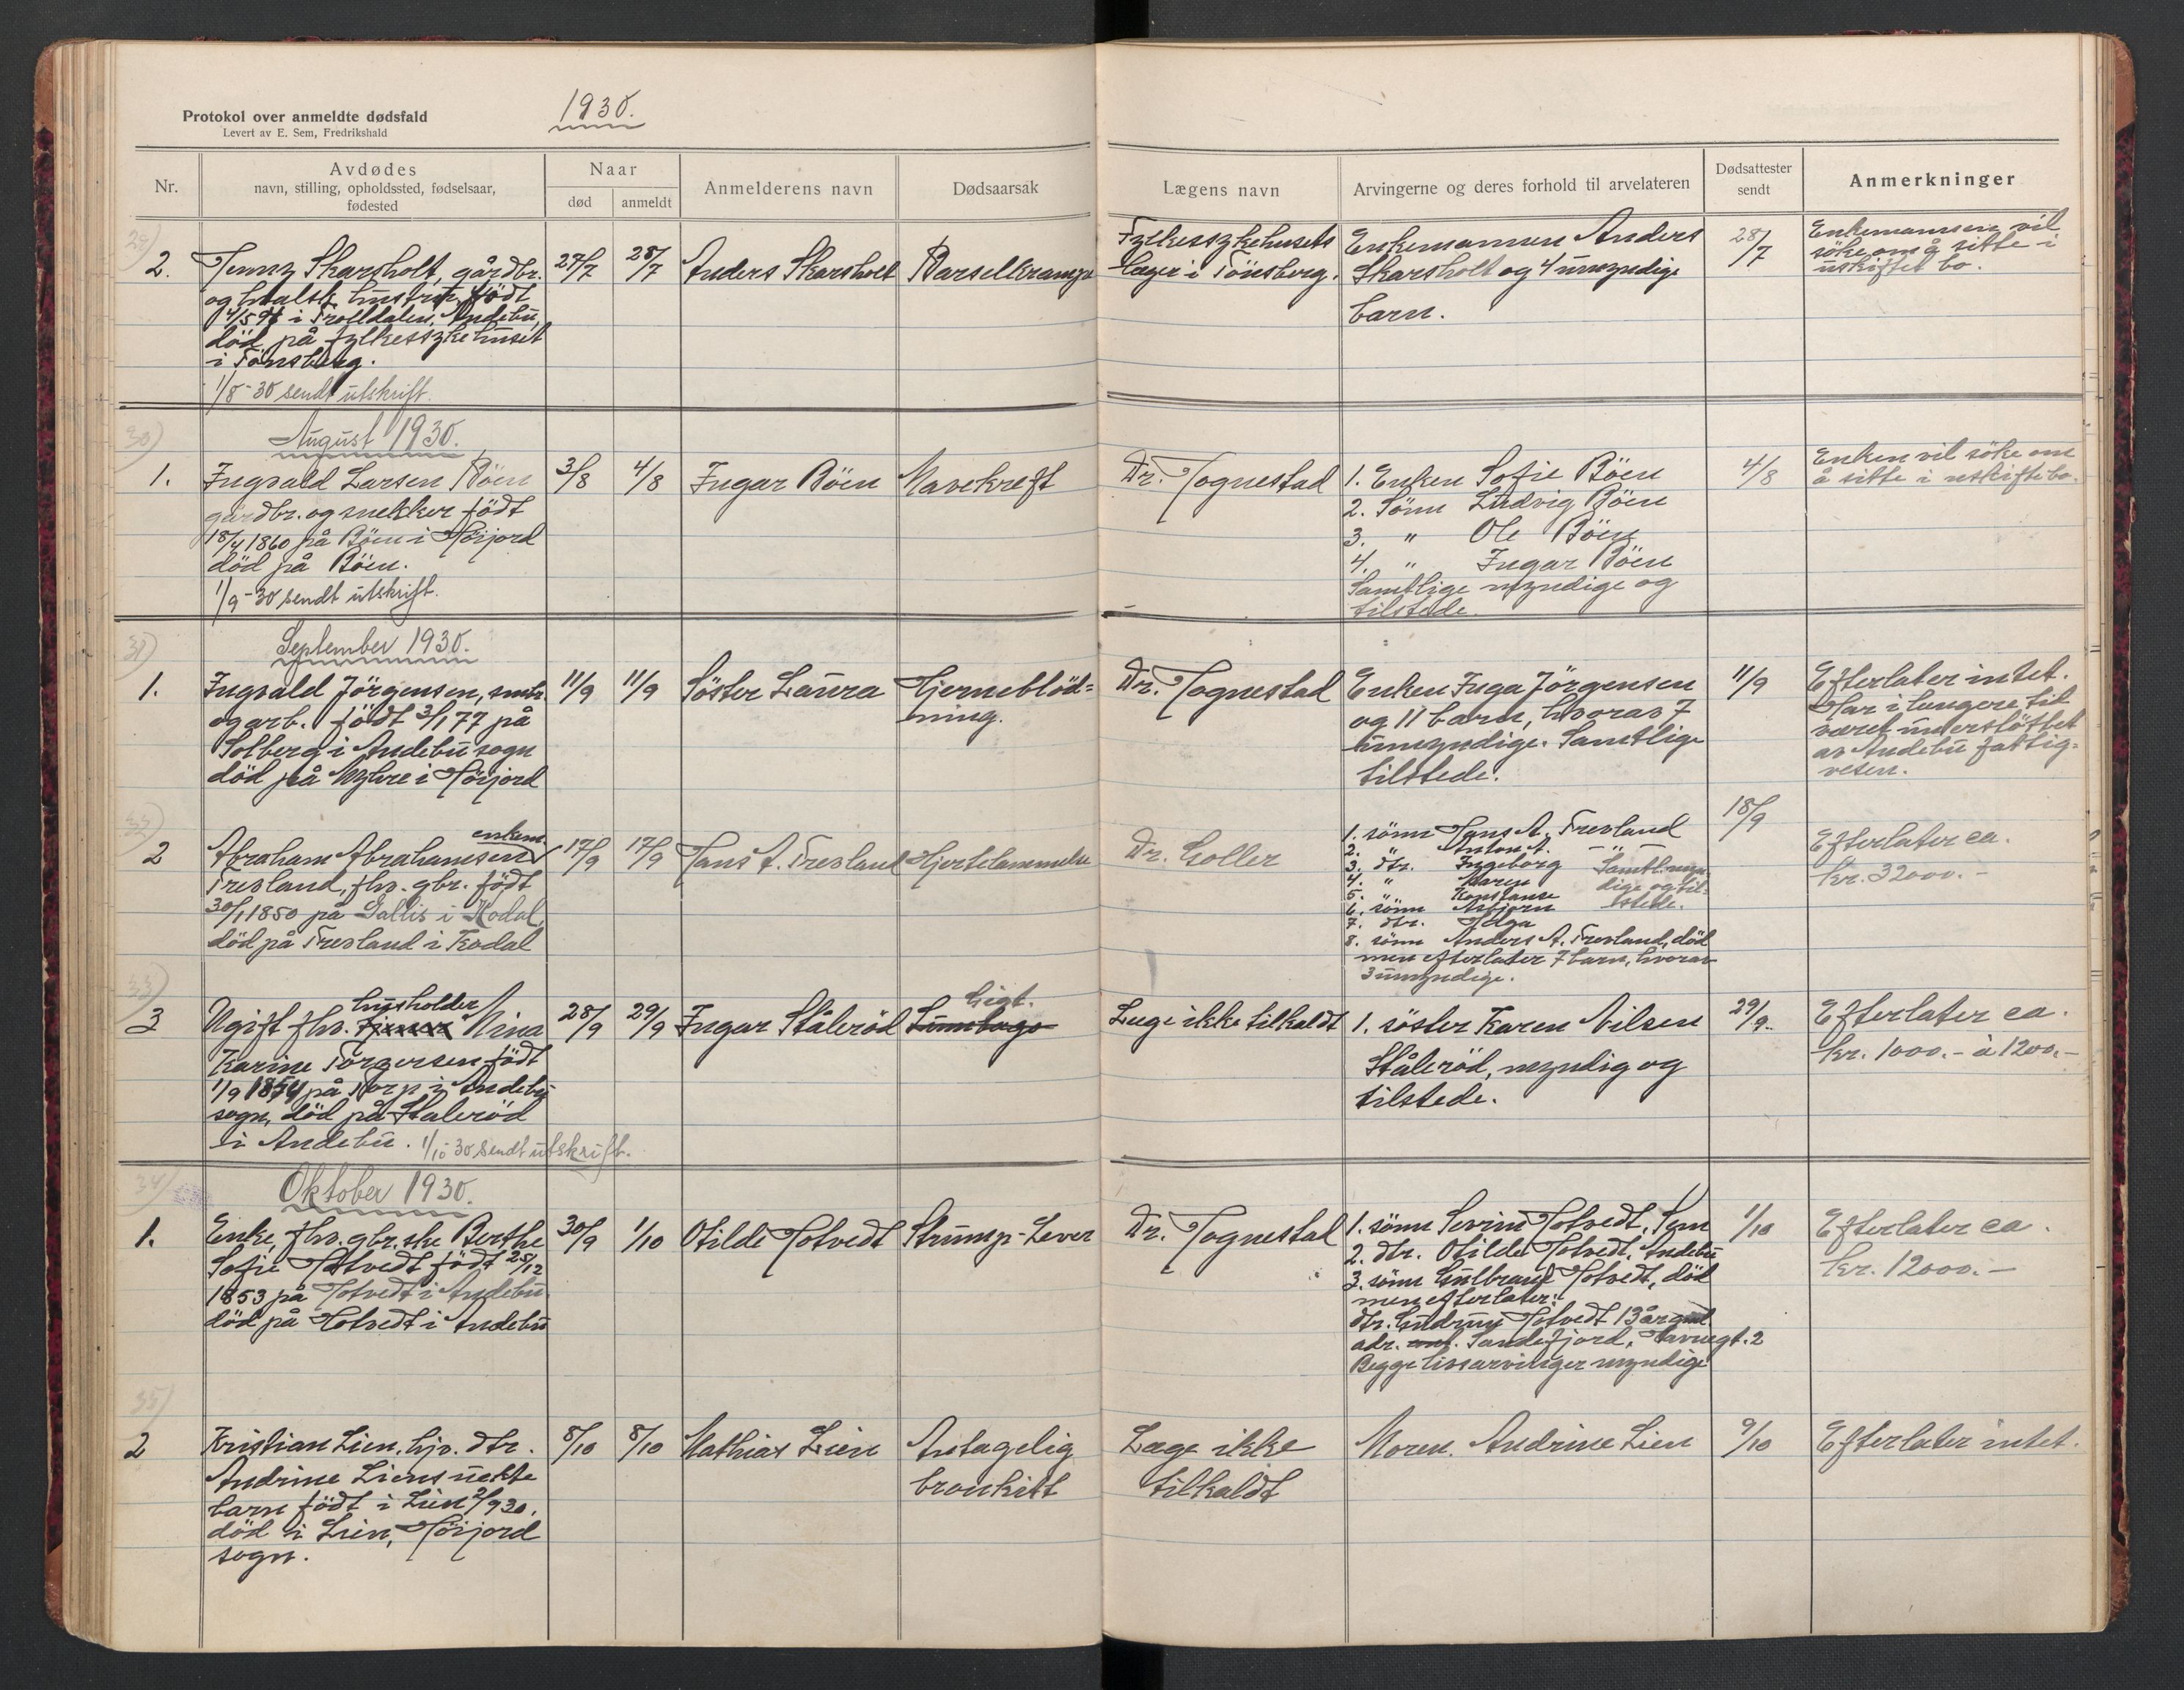 Protokol over anmeldte dødsfald
Levert av E. Sem, Fredrikshald
1930.
Nr.
Avdødes
navn, stilling, opholdssted, fødselsaar,
fødested
Naar
død
anmeldt
Anmelderens navn
Dødsaarsak
Lægens navn
Arvingerne og deres forhold til arvelateren
Dødsattester
sendt
Anmerkninger
29)
2.
Jenny Skarsholt, gårdbr.
og hvalsk. hustru, födt
4/5 98 i Trolldalen, Andebu,
död på fylkessykehuset
i Tönsberg.
1/8-30 sendt utskrift.
27/7
28/7
Anders Skarsholt
Barselkrampe
Fylkessykehusets
læger i Tönsberg.
Enkemannen Anders
Skarsholt og 4 umyndige
barn.
28/7
Enkemannen vil
söke om å sitte i
uskiftet bo.
30)
August 1930.
1.
Ingvald Larsen Böen
gårdbr. og snekker födt
18/4 1860 på Böen i Höijord
död på Böen.
1/9-30 sendt utskrift.
3/8
4/8
Ingar Böen
Mavekreft
Dr. Tognestad
1. Enken Sofie Böen
2. Sönn Ludvig Böen
3. " Ole Böen
4. " Ingar Böen
Samtlige myndige og
tilstede.
4/8
Enken vil söke om
å sitte i uskifte bo.
31)
September 1930.
1.
Ingvald Jörgensen, smbr.
og arb. födt 3/1 77 på
Solberg i Andebu sogn
död på Myhre i Höijord
11/9
11/9
Söster Laura
Hjerneblöd=
ning.
Dr. Tognestad
Enken Inga Jörgensen
og 11 barn, hvorav 7
umyndige. Samtlige
tilstede.
11/9
Efterlater intet.
Har i lengere tid
været understöttet
av Andebu fattig-
vesen.
32)
2
enkem.
Abraham Abrahamsen
Fresland, fhv. gbr. födt
30/1 1850 på Gallis i Kodal,
död på Fresland i Kodal
17/9
17/9
Hans A. Fresland
Hjertelammelse
Dr. Holler
1. sönn Hans A. Fresland
2. " Anton A. — " —
3. dtr. Ingeborg Samtl. myn-
4. " Karen dige og til-
5. " Konstanse stede.
6. sönn Asbjörn
7. dtr. Helga
8. sönn Anders A. Fresland, död
men efterlater 7 barn, hvorav
3 umyndige.
18/9
Efterlater ca.
kr. 32000.-
33)
3
husholder
Ugift fhv. Nina
Karine Torgersen födt
1/9 1854 på Torp i Andebu
sogn, död på Stålerød
i Andebu. 1/10 30 sendt utskrift.
28/9
29/9
Ingar Stålerød
Gigt.
Lumbago
Lege ikke tilkaldt
1. söster Karen Nilsen
Stålerød, myndig og
tilstede.
29/9.
Efterlater ca.
kr. 1000.- à 1200.-
34)
Oktober 1930.
1.
Enke, fhv. gbr.ske Berthe
Sofie Hotvedt födt 25/12
1853 på Hotvedt i Andebu
död på Hotvedt i Andebu
30/9
1/10
Otilde Hotvedt
Strump-Lever
Dr. Tognestad
1. sönn Severin Hotvedt, Sem
2. dtr. Otilde Hotvedt, Andebu
3. sönn Gulbrand Hotvedt, död
men efterlater:
dtr. Gudrun Hotvedt 13 år gml
adr. Sandefjord, Havnegt. 2
Begge livsarvinger myndige
1/10
Efterlater ca.
kr. 12000.-
35)
2
Kristian Lien, hjv. dtr.
Andrine Liens uekte
barn födt i Lien 2/9 30,
död i Lien, Höijord
sogn.
8/10
8/10
Mathias Lien
Antagelig
bronkitt
Læge ikke
tilkaldt
Moren. Andrine Lien
9/10
Efterlater intet.